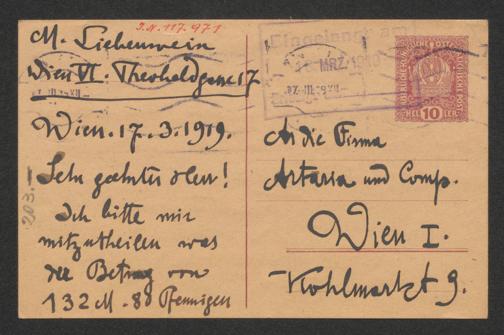 I.N. 117.971
M. Liebenwein
Wien VI. Theobaldgasse 17
Wien. 17.3.1919.
Sehr geehrter Herr!
Ich bitte mir
mitzutheilen was
der Betrag von
132 M. 80 Pfennigen
203.-
Eingelangt am
MRZ. 1919
An die Firma
Artaria und Comp.
Wien I.
Kohlmarkt 9.
HEL 10 LER